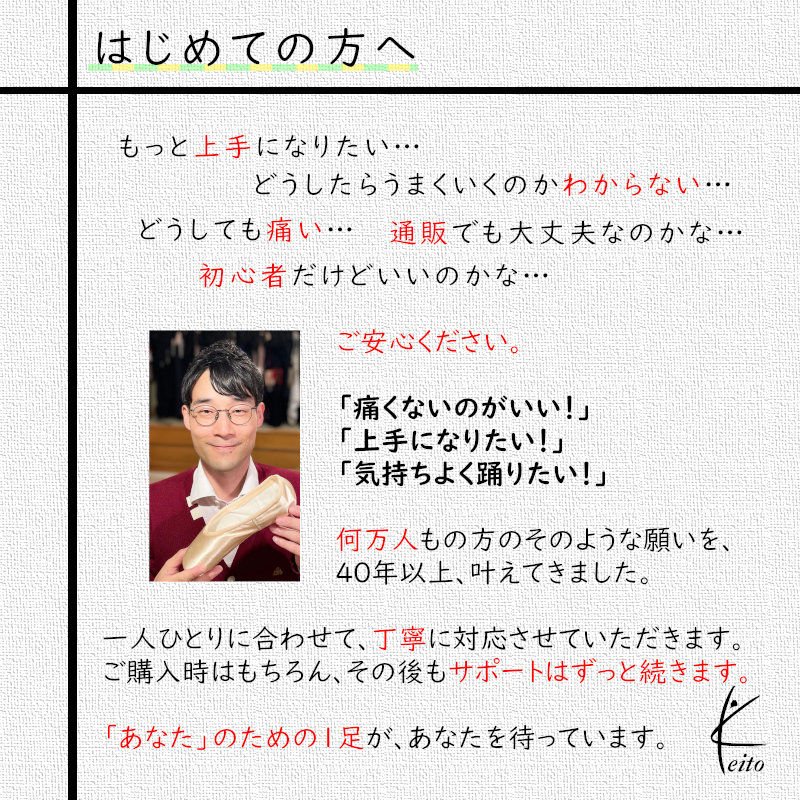 はじめての方へ
もっと上手になりたい…
どうしたらうまくいくのかわからない…
どうしても痛い… 通販でも大丈夫なのかな…
初心者だけどいいのかな…
ご安心ください。
「痛くないのがいい！」
「上手になりたい！」
「気持ちよく踊りたい！」
何万人もの方のそのような願いを、
40年以上、叶えてきました。
一人ひとりに合わせて、丁寧に対応させていただきます。
ご購入時はもちろん、その後もサポートはずっと続きます。
「あなた」のための1足が、あなたを待っています。
Keito